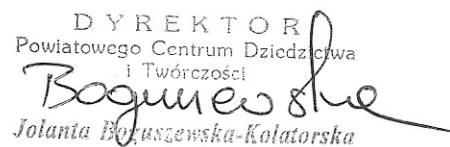 DYREKTOR
Powiatowego Centrum Dziedzictwa
i Twórczości
Boguszewska
Jolanta Boguszewska-Kolatorska